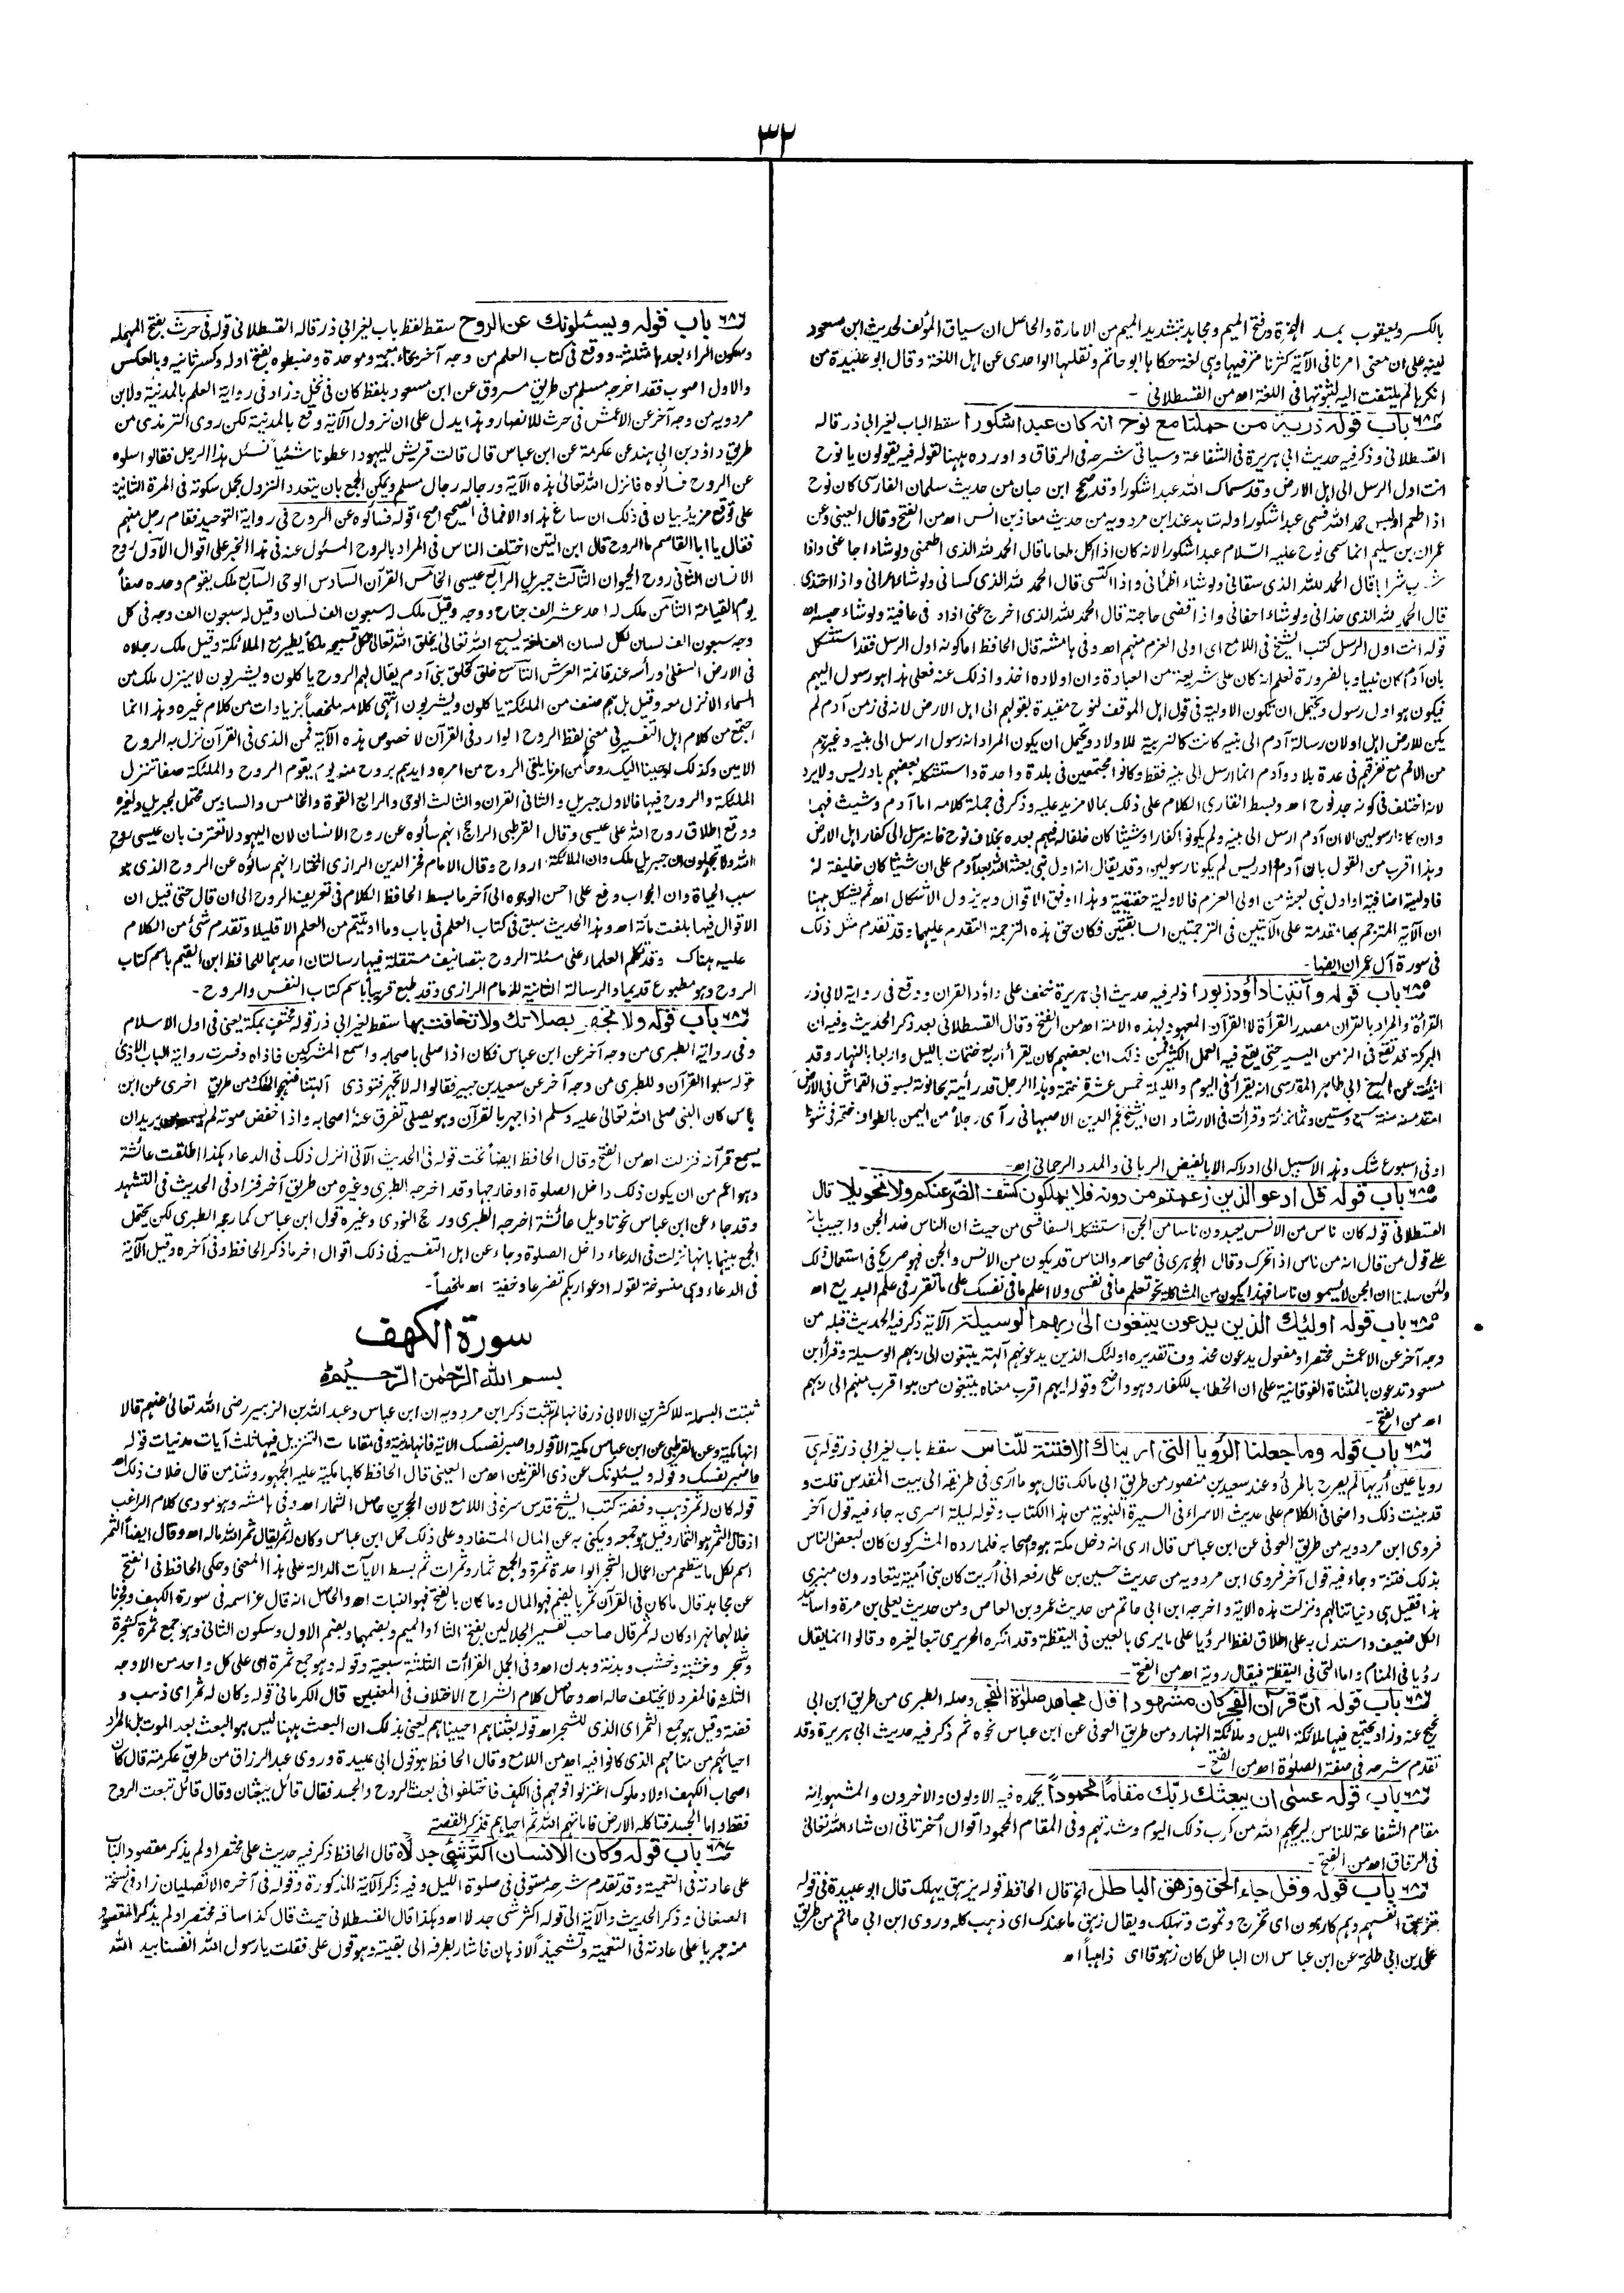 ٣٢
بالكسر وليعقوب بمد الهمزة وفتح الميم ومجاهد بتشديد الميم من الامارة والحاصل ان سياق المؤلف لحديث ابن مسعود
لينبه على ان معنى امرنا فى الآية كثرنا مترفيها وهى لغة حكاها ابو حاتم ونقلها الواحدى عن اهل اللغة وقال ابو عبيدة من
انكرها لم يلتفت اليه لثبوتها فى اللغة اھ من القسطلانى -
باب قوله ذرية من حملنا مع نوح انه كان عبدا شكورا سقط الباب لغير ابى ذر قاله
القسطلانى وذكر فيه حديث ابى هريرة فى الشفاعة وسياتى شرحه فى الرقاق واورده ههنا لقوله فيه يقولون يا نوح
انت اول الرسل الى اهل الارض وقد سماك الله عبدا شكورا وقد صحح ابن حبان من حديث سلمان الفارسى كان نوح
اذا طعم او لبس حمد الله فسمى عبدا شكورا وله شاهد عند ابن مردويه من حديث معاذ بن انس اھ من الفتح وقال العينى وعن
عمران بن سليم انما سمى نوح عليه السلام عبدا شكورا لانه كان اذا اكل طعاما قال الحمد لله الذى اطعمنى ولو شاء اجاعنى واذا
شرب شرابا قال الحمد لله الذى سقانى ولو شاء اظمأنى واذا اكتسى قال الحمد لله الذى كسانى ولو شاء اعرانى واذا احتذى
قال الحمد لله الذى حذانى ولو شاء احفانى واذا قضى حاجة قال الحمد لله الذى اخرج عنى اذاه فى عافية ولو شاء حبسه اھ
قوله انت اول الرسل كتب الشيخ فى اللامع اى اولى العزم منهم اھ وفى هامشه قال الحافظ اما كونه اول الرسل فقد استشكل
بان آدم كان نبيا وبالضرورة نعلم انه كان على شريعة من العبادة وان اولاده اخذوا ذلك عنه فعلى هذا هو رسول اليهم
فيكون هو اول رسول ويحتمل ان تكون الاولية فى قول اهل الموقف لنوح مقيدة بقولهم الى اهل الارض لانه فى زمن آدم لم
يكن للارض اهل او لان رسالة آدم الى بنيه كانت كالتربية للاولاد ويحتمل ان يكون المراد انه رسول ارسل الى بنيه وغيرهم
من الامم مع تفرقهم فى عدة بلاد وآدم انما ارسل الى بنيه فقط وكانوا مجتمعين فى بلدة واحدة واستشكله بعضهم بادريس ولا يرد
لانه اختلف فى كونه جد نوح اھ وبسط القارى الكلام على ذلك بما لا مزيد عليه وذكر فى جملة كلامه اما آدم وشيث فهما
وان كانا رسولين الا ان آدم ارسل الى بنيه ولم يكونوا كفارا وشيثا كان خلفا له فيهم بعده بخلاف نوح فانه مرسل الى كفار اهل الارض
وهذا اقرب من القول بان آدم وادريس لم يكونا رسولين وقد يقال انه اول نبى بعثه الله بعد آدم على ان شيثا كان خليفة له
فاوليته اضافية او اول نبى بعثه من اولى العزم فالاولية حقيقية وهذا اوفق الاقوال وبه يزول الاشكال اھ ثم يشكل ههنا
ان الآية المترجم بها متقدمة على الآيتين فى الترجمتين السابقتين فكان حق هذه الترجمة التقدم عليهما وقد تقدم مثل ذلك
فى سورة آل عمران ايضا -
باب قوله وآتينا داؤد زبورا ذكر فيه حديث ابى هريرة خفف على داؤد القران ووقع فى رواية لابى ذر
القرأة والمراد بالقران مصدر القرأة لا القرآن المعهود لهذه الامة اھ من الفتح وقال القسطلانى بعد ذكر الحديث وفيه ان
البركة قد تقع فى الزمن اليسير حتى يقع فيه العمل الكثير فمن ذلك ان بعضهم كان يقرأ اربع ختمات بالليل واربعا بالنهار وقد
انبئت عن الشيخ ابى طاهر المقدسى انه يقرأ فى اليوم والليلة خمس عشرة ختمة وهذا الرجل قد رأيته بحانوته بسوق القماش فى الارض
المقدسة سنة سبع وستين وثمانمائة وقرأت فى الارشاد ان الشيخ نجم الدين الاصبهانى رآى رجلا من اليمن بالطواف ختم فى شوط
او فى اسبوع شك وهذا لا سبيل الى ادراكه الا بالفيض الربانى والمدد الرحمانى اھ -
باب قوله قل ادعو الذين زعمتم من دونه فلا يملكون كشف الضر عنكم ولا تحويلا قال
القسطلانى قوله كان ناس من الانس يعبدون ناسا من الجن استشكل السفاقسى من حيث ان الناس ضد الجن واجيب بانه
على قول من قال انه من ناس اذا تحرك وقال الجوهرى فى صحاحه والناس قد يكون من الانس والجن فهو صريح فى استعمال ذلك
ولئن سلمنا ان الجن لا يسمون ناسا فهذا يكون من المشاكلة نحو تعلم ما فى نفسى ولا اعلم ما فى نفسك على ما تقرر فى علم البديع اھ
باب قوله اولئك الذين يدعون يبتغون الى ربهم الوسيلة الآية ذكر فيه الحديث قبله من
وجه آخر عن الاعمش مختصرا ومفعول يدعون محذوف تقديره اولئك الذين يدعونهم آلهة يبتغون الى ربهم الوسيلة وقرأ ابن
مسعود تدعون بالمثناة الفوقانية على ان الخطاب للكفار وهو واضح وقوله ايهم اقرب معناه يبتغون من هو اقرب منهم الى ربهم
اھ من الفتح -
باب قوله وما جعلنا الرؤيا التى اريناك الا فتنة للناس سقط باب لغير ابى ذر قوله هى
رويا عين أُريها لم يصرح بالمرئى وعند سعيد بن منصور من طريق ابى مالك قال هو ما أرى فى طريقه الى بيت المقدس قلت و
قد بينت ذلك واضحا فى الكلام على حديث الاسراء فى السيرة النبوية من هذا الكتاب وقوله ليلة اسرى به جاء فيه قول آخر
فروى ابن مردويه من طريق العوفى عن ابن عباس قال ارى انه دخل مكة هو واصحابه فلما رده المشركون كان لبعض الناس
بذلك فتنة وجاء فيه قول آخر فروى ابن مردويه من حديث حسين بن على رفعه انى أُريت كان بنى أمية يتعاورون منبرى
هذا فقيل هى دنيا تنالهم ونزلت هذه الاية واخرجه ابن ابى حاتم من حديث عمرو بن العاص ومن حديث يعلى بن مرة واسانيد
الكل ضعيف واستدل به على اطلاق لفظ الرؤيا على ما يرى بالعين فى اليقظة وقد انكره الحريرى تبعا لغيره وقالوا انما يقال
رؤيا فى المنام واما التى فى اليقظة فيقال روية اھ من الفتح -
باب قوله ان قرآن الفجر كان مشهودا قال مجاهد صلوة الفجر وصله الطبرى من طريق ابن ابى
نجيح عنه وزاد يجتمع فيها ملائكة الليل وملائكة النهار ومن طريق العوفى عن ابن عباس نحوه ثم ذكر فيه حديث ابى هريرة وقد
تقدم شرحه فى صفة الصلوة اھ من الفتح -
باب قوله عسى ان يبعثك ربك مقاما محمودا يحمده فيه الاولون والاخرون والمشهور انه
مقام الشفاعة للناس ليريحهم الله من كرب ذلك اليوم وشدته وفى المقام المحمود اقوال أُخر تاتى ان شاء الله تعالى
فى الرقاق اھ من الفتح -
باب قوله وقل جاء الحق وزهق الباطل الخ قال الحافظ قوله يزهق يهلك قال ابو عبيدة فى قوله
تزهق انفسهم وهم كارهون اى تخرج وتموت وتهلك ويقال زهق ما عندك اى ذهب كله وروى ابن ابى حاتم من طريق
على بن ابى طلحة عن ابن عباس ان الباطل كان زهوقا اى ذاهبا اھ
باب قوله ويسئلونك عن الروح سقط لفظ باب لغير ابى ذر قاله القسطلانى قوله فى حرث بفتح المهملة
وسكون الراء بعدها مثلثة ووقع فى كتاب العلم من وجه آخر بخاء معجمة وموحدة وضبطوه بفتح اوله وكسر ثانيه وبالعكس
والاول اصوب فقد اخرجه مسلم من طريق مسروق عن ابن مسعود بلفظ كان فى نخل وزاد فى رواية العلم بالمدينة ولابن
مردويه من وجه آخر عن الاعمش فى حرث للانصار وهذا يدل على ان نزول الآية وقع بالمدينة لكن روى الترمذى من
طريق داؤد بن ابى هند عن عكرمة عن ابن عباس قال قالت قريش لليهود اعطونا شيئا نسئل هذا الرجل فقالوا سلوه
عن الروح فسالوه فانزل الله تعالى هذه الآية ورجاله رجال مسلم ويمكن الجمع بان يتعدد النزول بحمل سكوته فى المرة الثانية
على توقع مزيد بيان فى ذلك ان ساغ هذا والا فما فى الصحيح اصح اھ قوله فسالوه عن الروح فى رواية التوحيد فقام رجل منهم
فقال يا ابا القاسم ما الروح قال ابن التين اختلف الناس فى المراد بالروح المسئول عنه فى هذا الخبر على اقوال الاول روح
الانسان الثانى روح الحيوان الثالث جبريل الرابع عيسى الخامس القرآن السادس الوحى السابع ملك يقوم وحده صفا
يوم القيامة الثامن ملك له احد عشر الف جناح ووجه وقيل ملك له سبعون الف لسان وقيل له سبعون الف وجه فى كل
وجه سبعون الف لسان لكل لسان الف لغة يسبح الله تعالى يخلق الله تعالى بكل تسبيحة ملكا يطير مع الملائكة وقيل ملك رجلاه
فى الارض السفلى ورأسه عند قائمة العرش التاسع خلق كخلق بنى آدم يقال لهم الروح ياكلون ويشربون لا ينزل ملك من
السماء الا نزل معه وقيل بل هم صنف من الملئكة ياكلون ويشربون انتهى كلامه ملخصا بزيادات من كلام غيره وهذا انما
اجتمع من كلام اهل التفسير فى معنى لفظ الروح الوارد فى القرآن لا خصوص هذه الآية فمن الذى فى القرآن نزل به الروح
الامين وكذلك اوحينا اليك روحا من امرنا يلقى الروح من امره وايدهم بروح منه يوم يقوم الروح والملئكة صفا تنزل
الملئكة والروح فيها فالاول جبريل والثانى القران والثالث الوحى والرابع القوة والخامس والسادس محتمل لجبريل ولغيره
ووقع اطلاق روح الله على عيسى وقال القرطبى الراجح انهم سألوه عن روح الانسان لان اليهود لا تعترف بان عيسى روح
الله ولا تجهلون ان جبريل ملك وان الملائكة ارواح وقال الامام فخر الدين الرازى المختار انهم سالوه عن الروح الذى هو
سبب الحياة وان الجواب وقع على احسن الوجوه الى آخر ما بسط الحافظ الكلام فى تعريف الروح الى ان قال حتى قيل ان
الاقوال فيها بلغت مائة اھ وهذا الحديث سبق فى كتاب العلم فى باب وما اوتيتم من العلم الا قليلا وتقدم شئ من الكلام
عليه هناك وقد تكلم العلماء على مسئلة الروح بتصانيف مستقلة فيها رسالتان احدهما للحافظ ابن القيم باسم كتاب
الروح وهو مطبوع قديما والرسالة الثانية للامام الرازى وقد طبع قريبا باسم كتاب النفس والروح -
باب قوله ولا تجهر بصلاتك ولا تخافت بها سقط لغير ابى ذر قوله مختف بمكة يعنى فى اول الاسلام
وفى رواية الطبرى من وجه آخر عن ابن عباس فكان اذا صلى باصحابه واسمع المشركين فاذاه وفسرت رواية الباب الاذى
بقوله سبوا القرآن وللطبرى من وجه آخر عن سعيد بن جبير فقالوا له لا تجهر فتوذى آلهتنا فنهجو الهك ومن طريق اخرى عن ابن
عباس كان النبى صلى الله تعالى عليه وسلم اذا جهر بالقرآن وهو يصلى تفرق عنه اصحابه واذا خفض صوته لم يسمعه من يريد ان
يسمع قرآنه فنزلت اھ من الفتح وقال الحافظ ايضا تحت قوله فى الحديث الآتى انزل ذلك فى الدعاء هكذا اطلقت عائشة
وهو اعم من ان يكون ذلك داخل الصلوة او خارجها وقد اخرجه الطبرى وغيره من طريق آخر فزاد فى الحديث فى التشهد
وقد جاء عن ابن عباس نحو تاويل عائشة اخرجه الطبرى ورجح النووى وغيره قول ابن عباس كما رجحه الطبرى لكن يحتمل
الجمع بينهما بانها نزلت فى الدعاء داخل الصلوة وجاء عن اهل التفسير فى ذلك اقوال اخر ما ذكر الحافظ وفى آخره وقيل الآية
فى الدعاء وهى منسوخة بقوله ادعوا ربكم تضرعا وخفية اھ ملخصا -
سورة الكهف
بسم الله الرحمن الرحيم
ثبتت البسملة للاكثرين الا لابى ذر فانها لم تثبت ذكر ابن مردويه ان ابن عباس وعبد الله بن الزبير رضى الله تعالى عنهم قالا
انها مكية وعن القرطبى عن ابن عباس مكية الا قوله واصبر نفسك الاية فانها مدنية وفى مقامات التنزيل فيها ثلث آيات مدنيات قوله
واصبر نفسك وقوله ويسئلونك عن ذى القرنين اھ من العينى قال الحافظ كلها مكية عليه الجمهور وشذ من قال خلاف ذلك اھ
قوله كان له ثمر ذهب وفضة كتب الشيخ قدس سره فى اللامع لان الحجرين حاصل الثمار اھ وفى هامشه وهو مودى كلام الراغب
اذ قال الثمر هو الثمار وقيل هو جمعه ويكنى به عن المال المستفاد وعلى ذلك حمل ابن عباس وكان له ثمر يقال ثمر الله ماله اھ وقال ايضا الثمر
اسم لكل ما يتطعم من اعمال الشجر الواحدة ثمرة والجمع ثمار وثمرات ثم بسط الآيات الدالة على هذا المعنى وحكى الحافظ فى الفتح
عن مجاهد قال ما كان فى القرآن ثمر بالضم فهو المال وما كان بالفتح فهو النبات اھ والحاصل انه قال عز اسمه فى سورة الكهف وفجرنا
خلالهما نهرا وكان له ثمر قال صاحب تفسير الجلالين بفتح الثاء والميم وبضمهما وبضم الاول وسكون الثانى وهو جمع ثمرة كشجرة
وشجر وخشبة وخشب وبدنة وبدن اھ وفى الجمل القراآت الثلثة سبعية وقوله وهو جمع ثمرة اى على كل واحد من الاوجه
الثلثة فالمفرد لا يختلف حاله اھ وحاصل كلام الشراح الاختلاف فى المعنيين قال الكرمانى قوله وكان له ثمر اى ذهب و
فضة وقيل هو جمع الثمر اى الذى للشجر اھ قوله بعثناهم احييناهم يعنى بذلك ان البعث ههنا ليس هو البعث بعد الموت بل المراد
احياءهم من منامهم الذى كانوا فيه اھ من اللامع وقال الحافظ هو قول ابى عبيدة وروى عبد الرزاق من طريق عكرمة قال كان
اصحاب الكهف اولاد ملوك اعتزلوا قومهم فى الكهف فاختلفوا فى بعث الروح والجسد فقال قائل يبعثان وقال قائل تبعث الروح
فقط واما الجسد فتاكله الارض فاماتهم الله ثم احياهم فذكر القصة
باب قوله وكان الانسان اكثر شئ جدلا قال الحافظ ذكر فيه حديث على مختصرا ولم يذكر مقصود الباب
على عادته فى التعمية وقد تقدم شرحه مستوفى فى صلوة الليل وفيه ذكر الآية المذكورة وقوله فى آخره الا تصليان زاد فى نسخة
الصغانى وذكر الحديث والآية الى قوله اكثر شئ جدلا اھ وهكذا قال القسطلانى حيث قال كذا ساقه مختصرا ولم يذكر المقصود
منه جريا على عادته فى التعمية وتشحيذ الاذهان فاشار بطرفه الى بقيته وهو قول على فقلت يا رسول الله انفسنا بيد الله